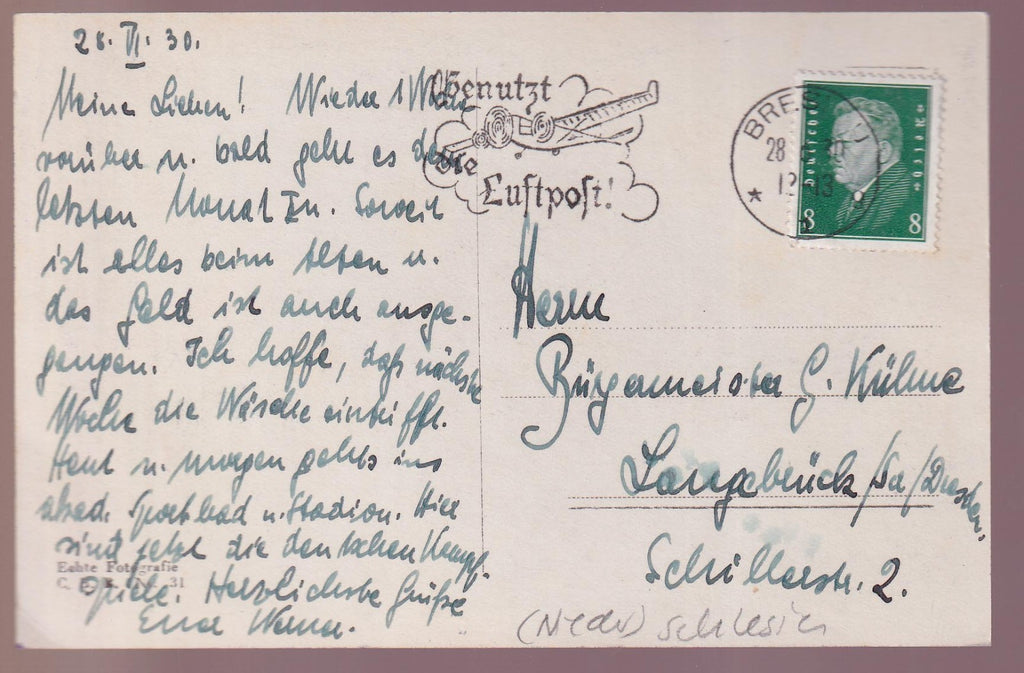 28. VI. 30.
Meine Lieben! Wieder 1 Woche
vorüber u. bald geht es dem
letzten Monat zu. Soweit
ist alles beim Alten u.
das Geld ist auch ausge-
gangen. Ich hoffe, daß nächste
Woche die Wäsche eintrifft.
Heut u. morgen gehts ins
akad. Sportbad u. Stadion. Hier
sind jetzt die deutschen Kampf-
spiele. Herzlichste Grüße
Euer Werner.
Echte Fotografie
C. 31
Benutzt
die
Luftpost!
BRESLAU
28
12-13
*
Deutsches Reich
8 8
Herrn
Bürgermeister G. Kühne
Langebrück/Sa/Dresden.
Schillerstr. 2.
(Nieder) schlesien